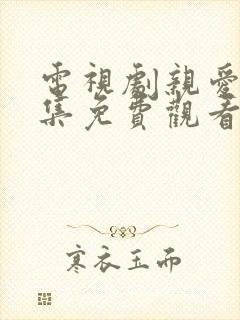 電視劇親愛
集免費觀看
寒衣玉而